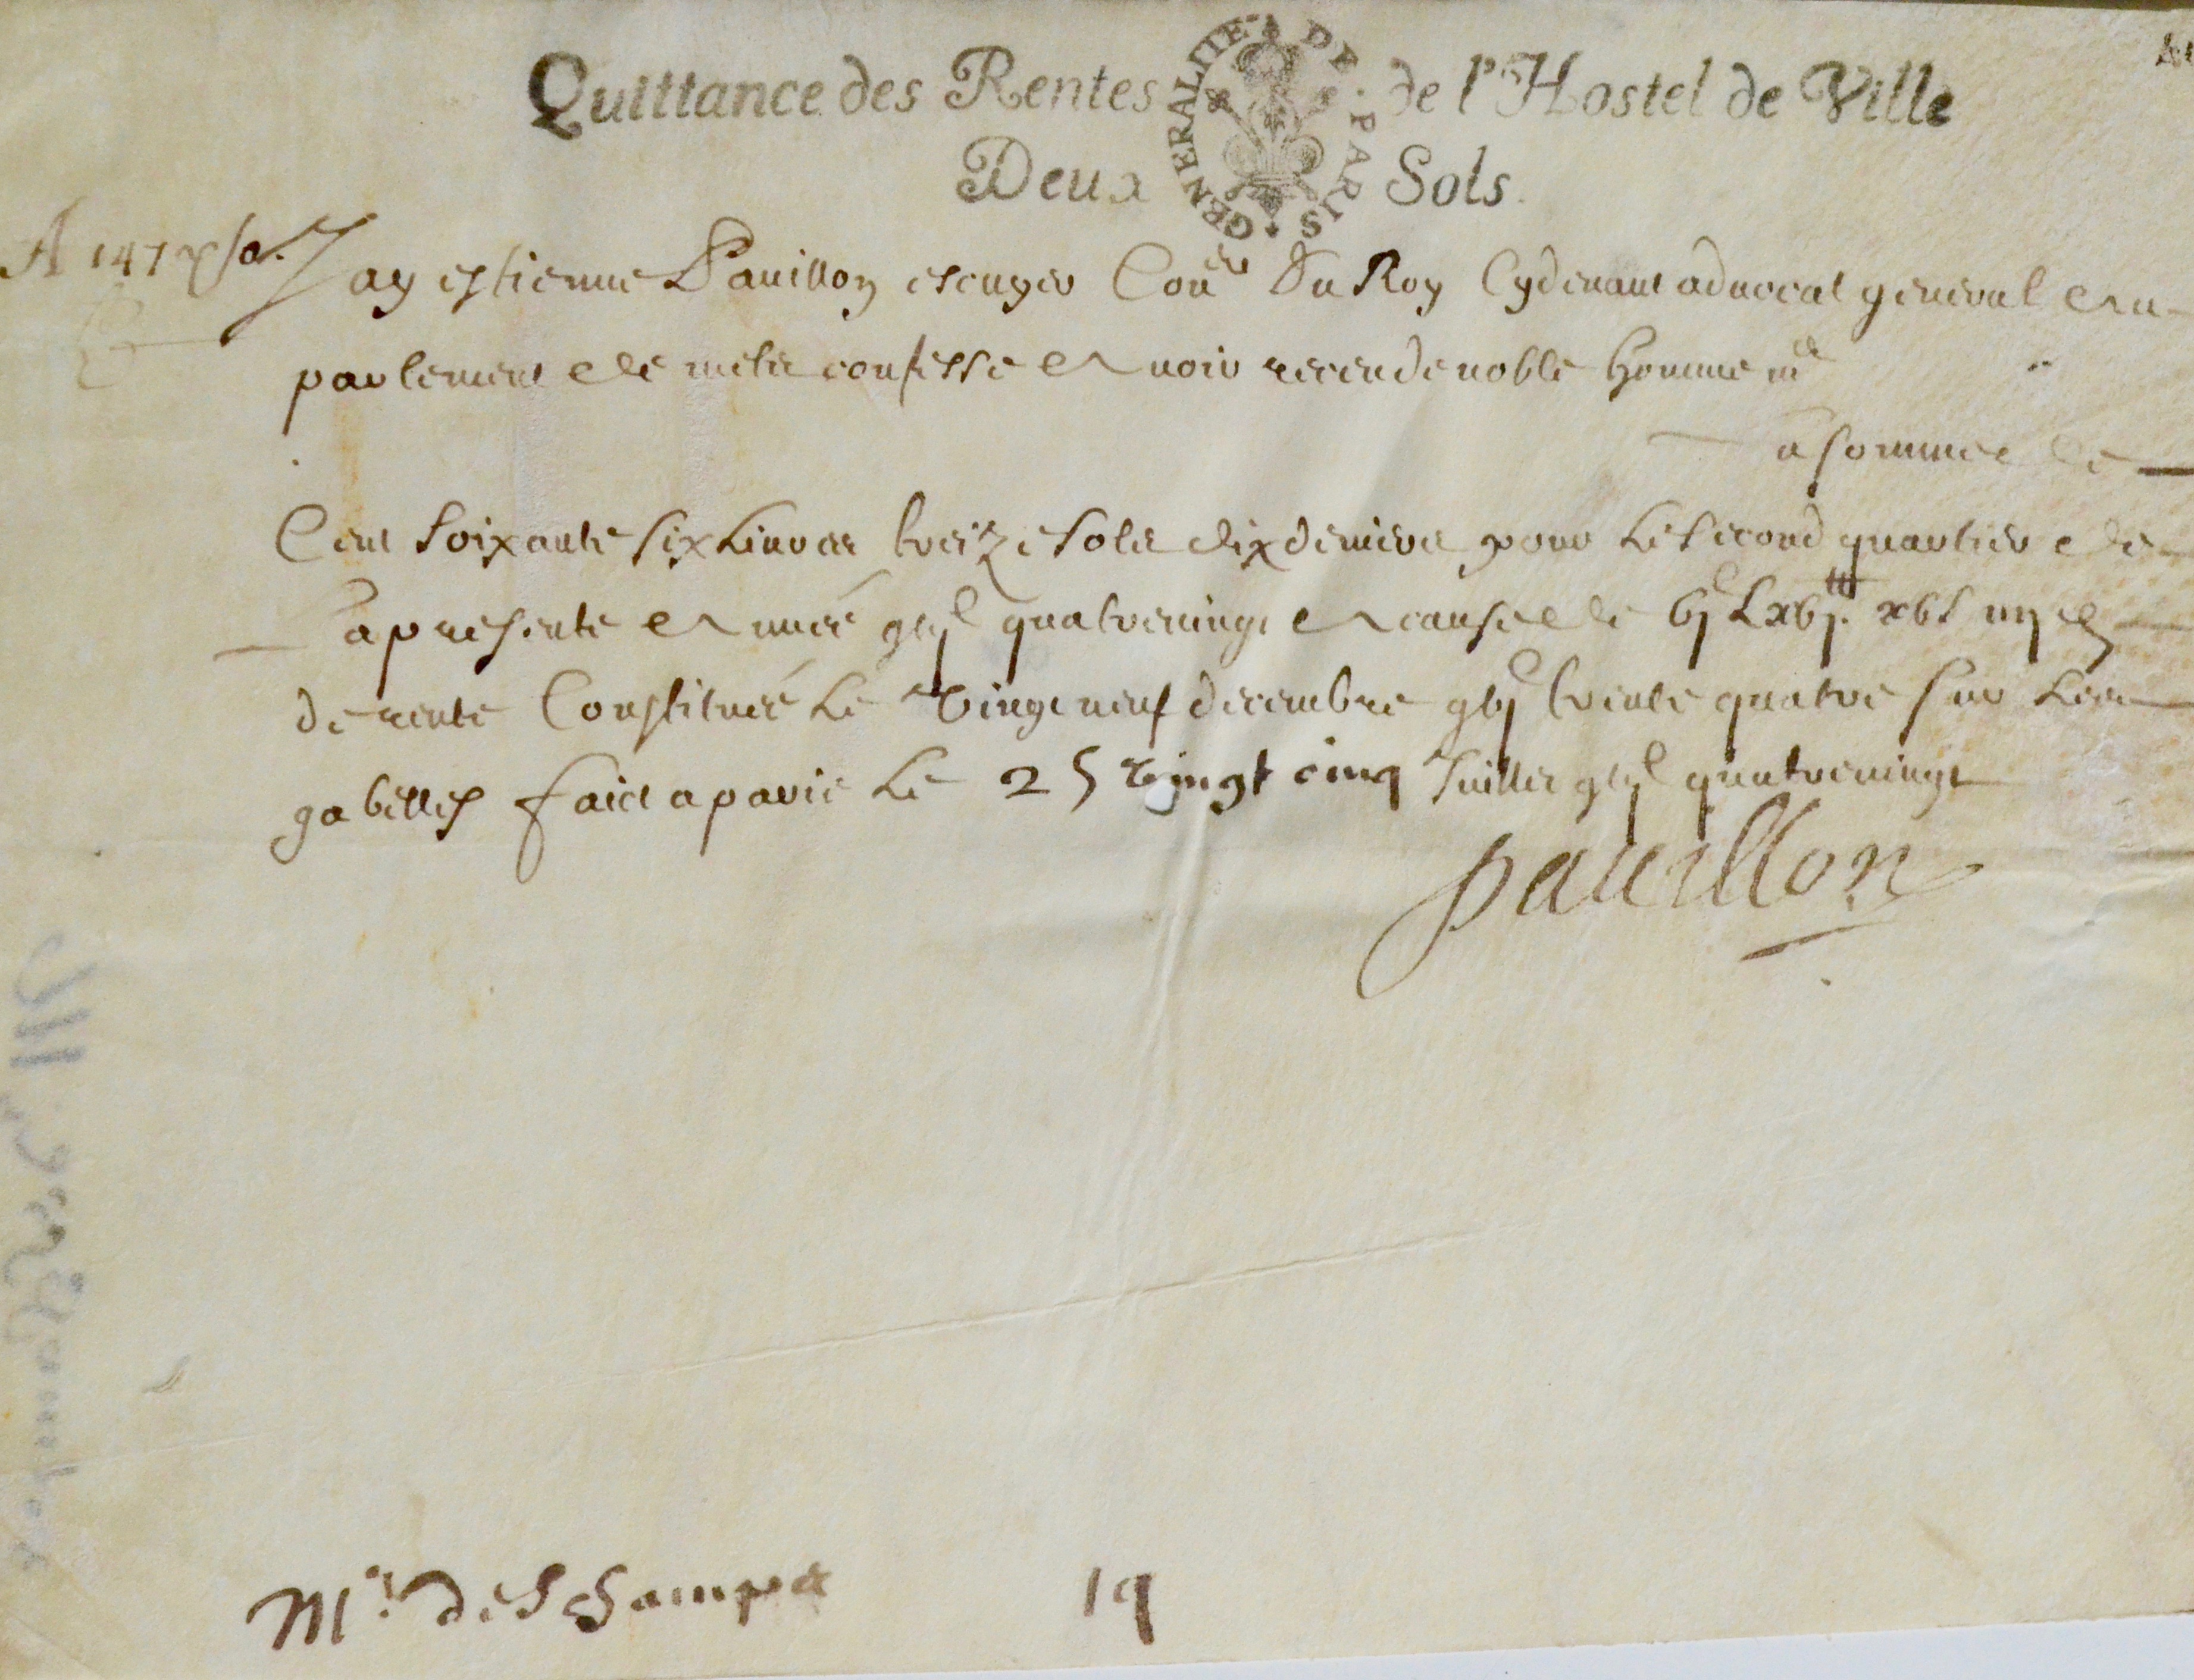 Quittance des Rentes de l'Hostel de Ville
GENERALITE DE PARIS
Deux Sols
A 147
Jay estienne Pauillon escuyer Con.er Du Roy Cydeuant aduocat general au
parlement de mets confesse auoir receu de noble homme m.e
la somme de
Cent soixante six Liures treize sols dix deniers pour Le second quartier de
la presente année gbjc quatreuingt a cause de bjc Lxbj.tt xbs iiij d
de rente Constituée Le Vingt neuf decembre gbjc trente quatre sur Les
gabelles faict a paris Le 25 vingt cinq Juillet gbjc quatreuingt
pauillon
Mr. deschamps 19